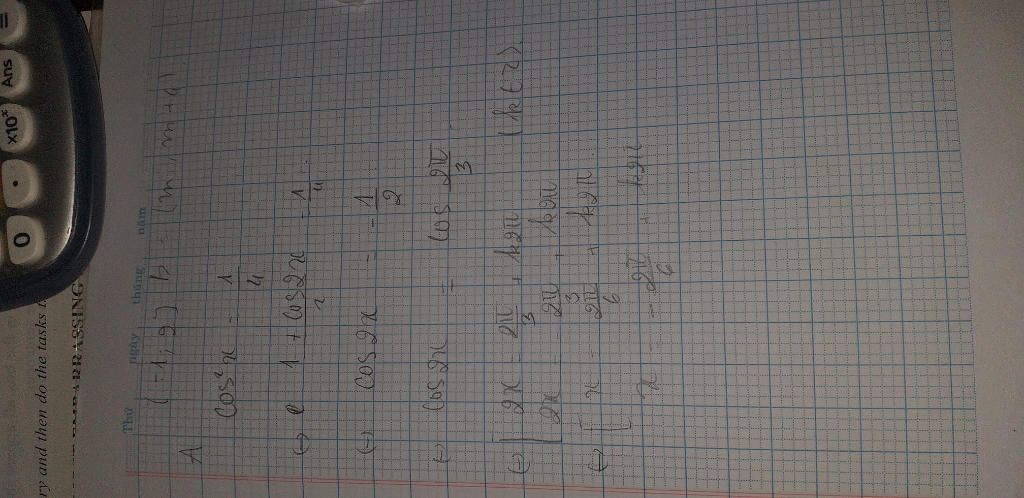 0 . x10ˣ Ans =
ry and then do the tasks
EMBARRASSING
Thứ ngày tháng năm
A (-1; 2) b = (m; m+1)
cos²x = 1/4
(=) 1 + cos2x / 2 = 1/4
(=) cos2x = -1/2
(=) cos2x = cos 2π/3
(=) [ 2x = 2π/3 + k2π (k∈Z)
2x = -2π/3 + k2π
(=) [ x = 2π/6 + k2π
x = -2π/6 + k2π